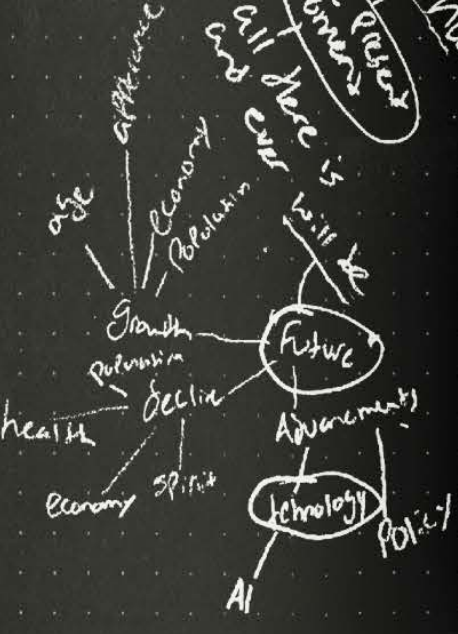 present
all there is
and ever will be
age
economy
Population
Growth
Future
population
decline
health
economy
spirit
Advancements
Technology
Policy
AI